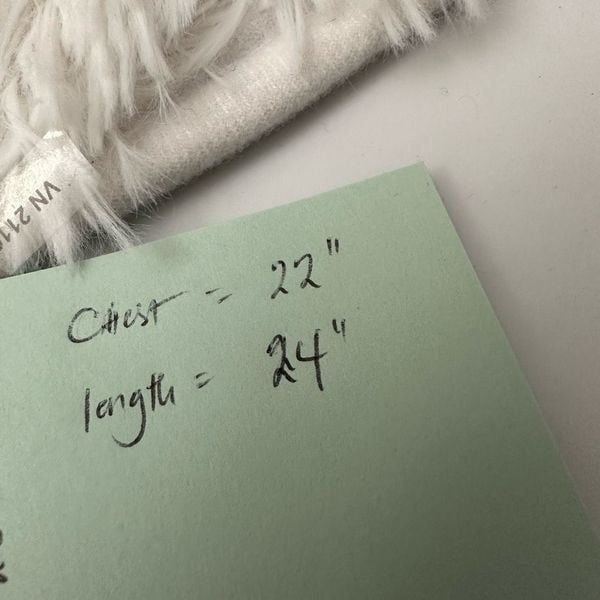 VN 211
Chest = 22"
length = 24"